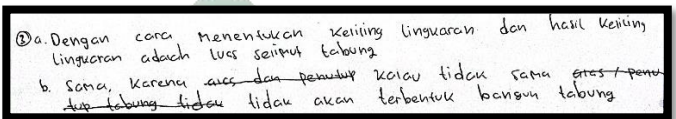 ② a. Dengan cara Menentukan Keliling lingkaran dan hasil Keliling
lingkaran adalah luas selimut tabung
b. Sama, Karena alas dan penutup kalau tidak sama atas / penu
tup tabung tidak tidak akan terbentuk bangun tabung